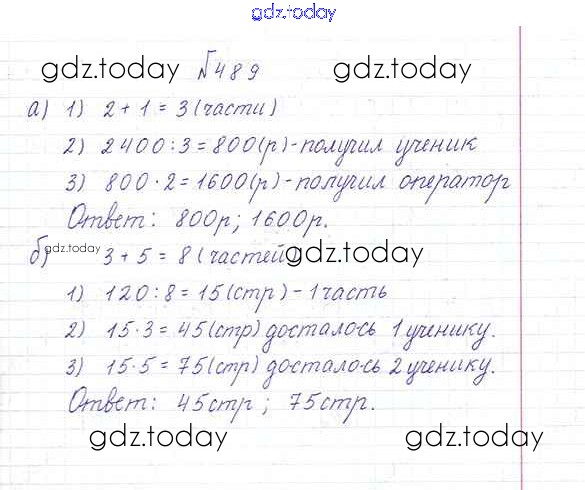 gdz.today
gdz.today №489 gdz.today
а) 1) 2 + 1 = 3 (части)
2) 2400 : 3 = 800 (р) - получил ученик
3) 800 · 2 = 1600 (р) - получил оператор
Ответ: 800р; 1600р.
gdz.today
б) 3 + 5 = 8 (частей)
gdz.today
1) 120 : 8 = 15 (стр) - 1 часть
2) 15 · 3 = 45 (стр) досталось 1 ученику.
3) 15 · 5 = 75 (стр) досталось 2 ученику.
Ответ: 45стр; 75стр.
gdz.today gdz.today